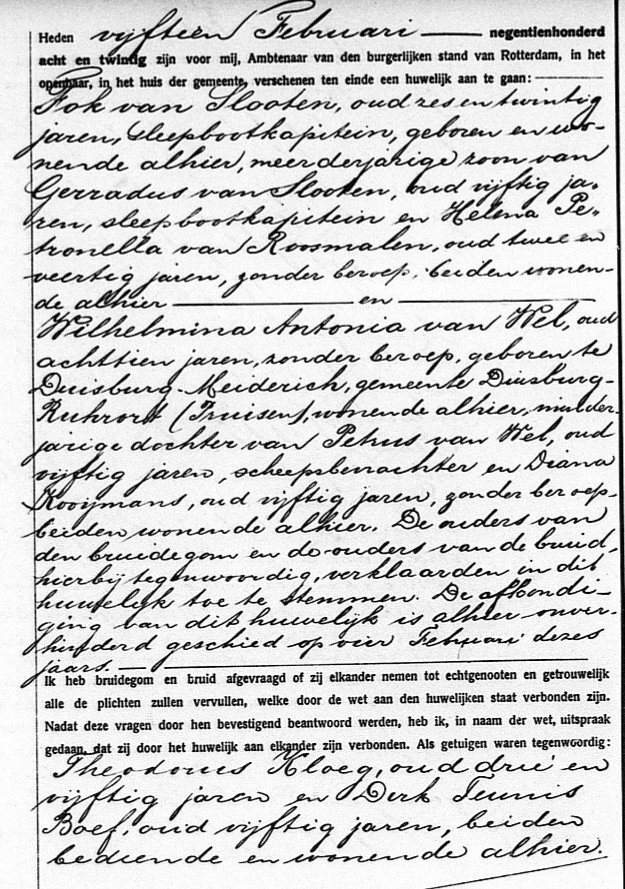 Heden vijftien Februari negentienhonderd
acht en twintig zijn voor mij, Ambtenaar van den burgerlijken stand van Rotterdam, in het
openbaar, in het huis der gemeente, verschenen ten einde een huwelijk aan te gaan:
Fok van Slooten, oud zes en twintig
jaren, sleepbootkapitein, geboren en wo-
nende alhier, meerderjarige zoon van
Gerradus van Slooten, oud vijftig ja-
ren, sleepbootkapitein en Helena Pe-
tronella van Roosmalen, oud twee en
veertig jaren, zonder beroep, beiden wonen-
de alhier en
Wilhelmina Antonia van Wel, oud
achttien jaren, zonder beroep, geboren te
Duisburg-Meiderich, gemeente Duisburg-
Ruhrort (Pruisen), wonende alhier, minder-
jarige dochter van Petrus van Wel, oud
vijftig jaren, scheepsbevrachter en Diana
Kooijmans, oud vijftig jaren, zonder beroep,
beiden wonende alhier. De ouders van
den bruidegom en de ouders van de bruid,
hierbij tegenwoordig, verklaarden in dit
huwelijk toe te stemmen. De afkondi-
ging van dit huwelijk is alhier onver-
hinderd geschied op vier Februari dezes
jaars.
Ik heb bruidegom en bruid afgevraagd of zij elkander nemen tot echtgenooten en getrouwelijk
alle de plichten zullen vervullen, welke door de wet aan den huwelijken staat verbonden zijn.
Nadat deze vragen door hen bevestigend beantwoord werden, heb ik, in naam der wet, uitspraak
gedaan, dat zij door het huwelijk aan elkander zijn verbonden. Als getuigen waren tegenwoordig:
Theodorus Kloeg, oud drie en
vijftig jaren en Dirk Teunis
Boef, oud vijftig jaren, beiden
bediende en wonende alhier.